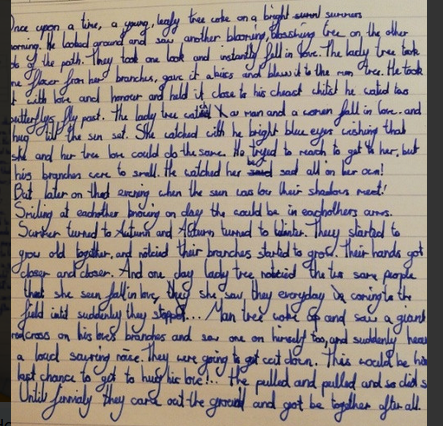 Once upon a time, a young, leafy tree woke on a bright summers
morning. He looked around and saw another blooming, blossoming tree on the other
side of the path. They took one look and instantly fell in love. The lady tree took
one flower from her branches, gave it a kiss and blew it to the man tree. He took
it with love and honour and held it close to his cheast whilst he watched two
butterflys fly past. The lady tree watched a man and a women fall in love. and
hug till the sun set. She watched with he bright blue eyes wishing that
she and her tree love could do the same. He tryed to reach to get to her, but
his branches were to small. He watched her sad all on her own!
But later on that evening when the sun was low their shadows meet!
Smiling at eachother knowing on day the would be in eachothers arms.
Summer turned to Autumn and Autumn turned to Winter. They started to
grow old together, and noticied their branches started to grow. Their hands got
closer and closer. And one day lady tree noticied the two same people
that she seen fall in love, they she saw they everyday coming to the
field intil suddenly they stopped.... Man tree woke up and saw a giant
red cross on his loves branches and saw one on himself too, and suddenly hears
a loud sawring noise. They were going to get cut down. This would be his
last chance to get to hug his love!.. He pulled and pulled and so did s
Until finnialy they came out the ground and got be together after all.